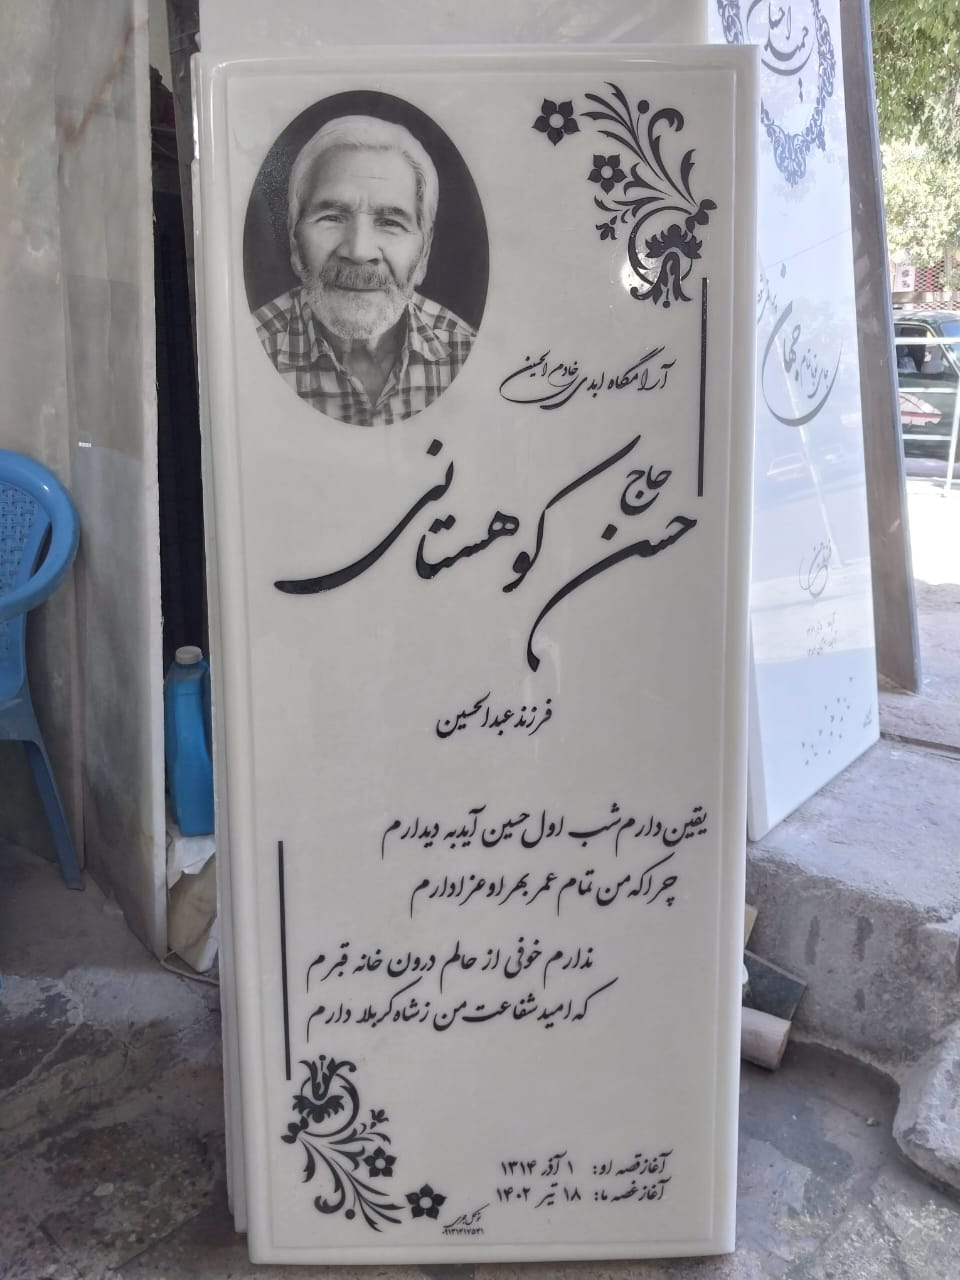 آرامگاه ابدی خادم الحسین
حاج
حسن کوهستانی
فرزند عبدالحسین
یقین دارم شب اول حسین آید به دیدارم
چرا که من تمام عمر بهر او عزادارم
ندارم خوفی از حالم درون خانه قبرم
که امید شفاعت من ز شاه کربلا دارم
آغاز قصه او: ۱ آذر ۱۳۱۴
آغاز غصه ما: ۱۸ تیر ۱۴۰۲